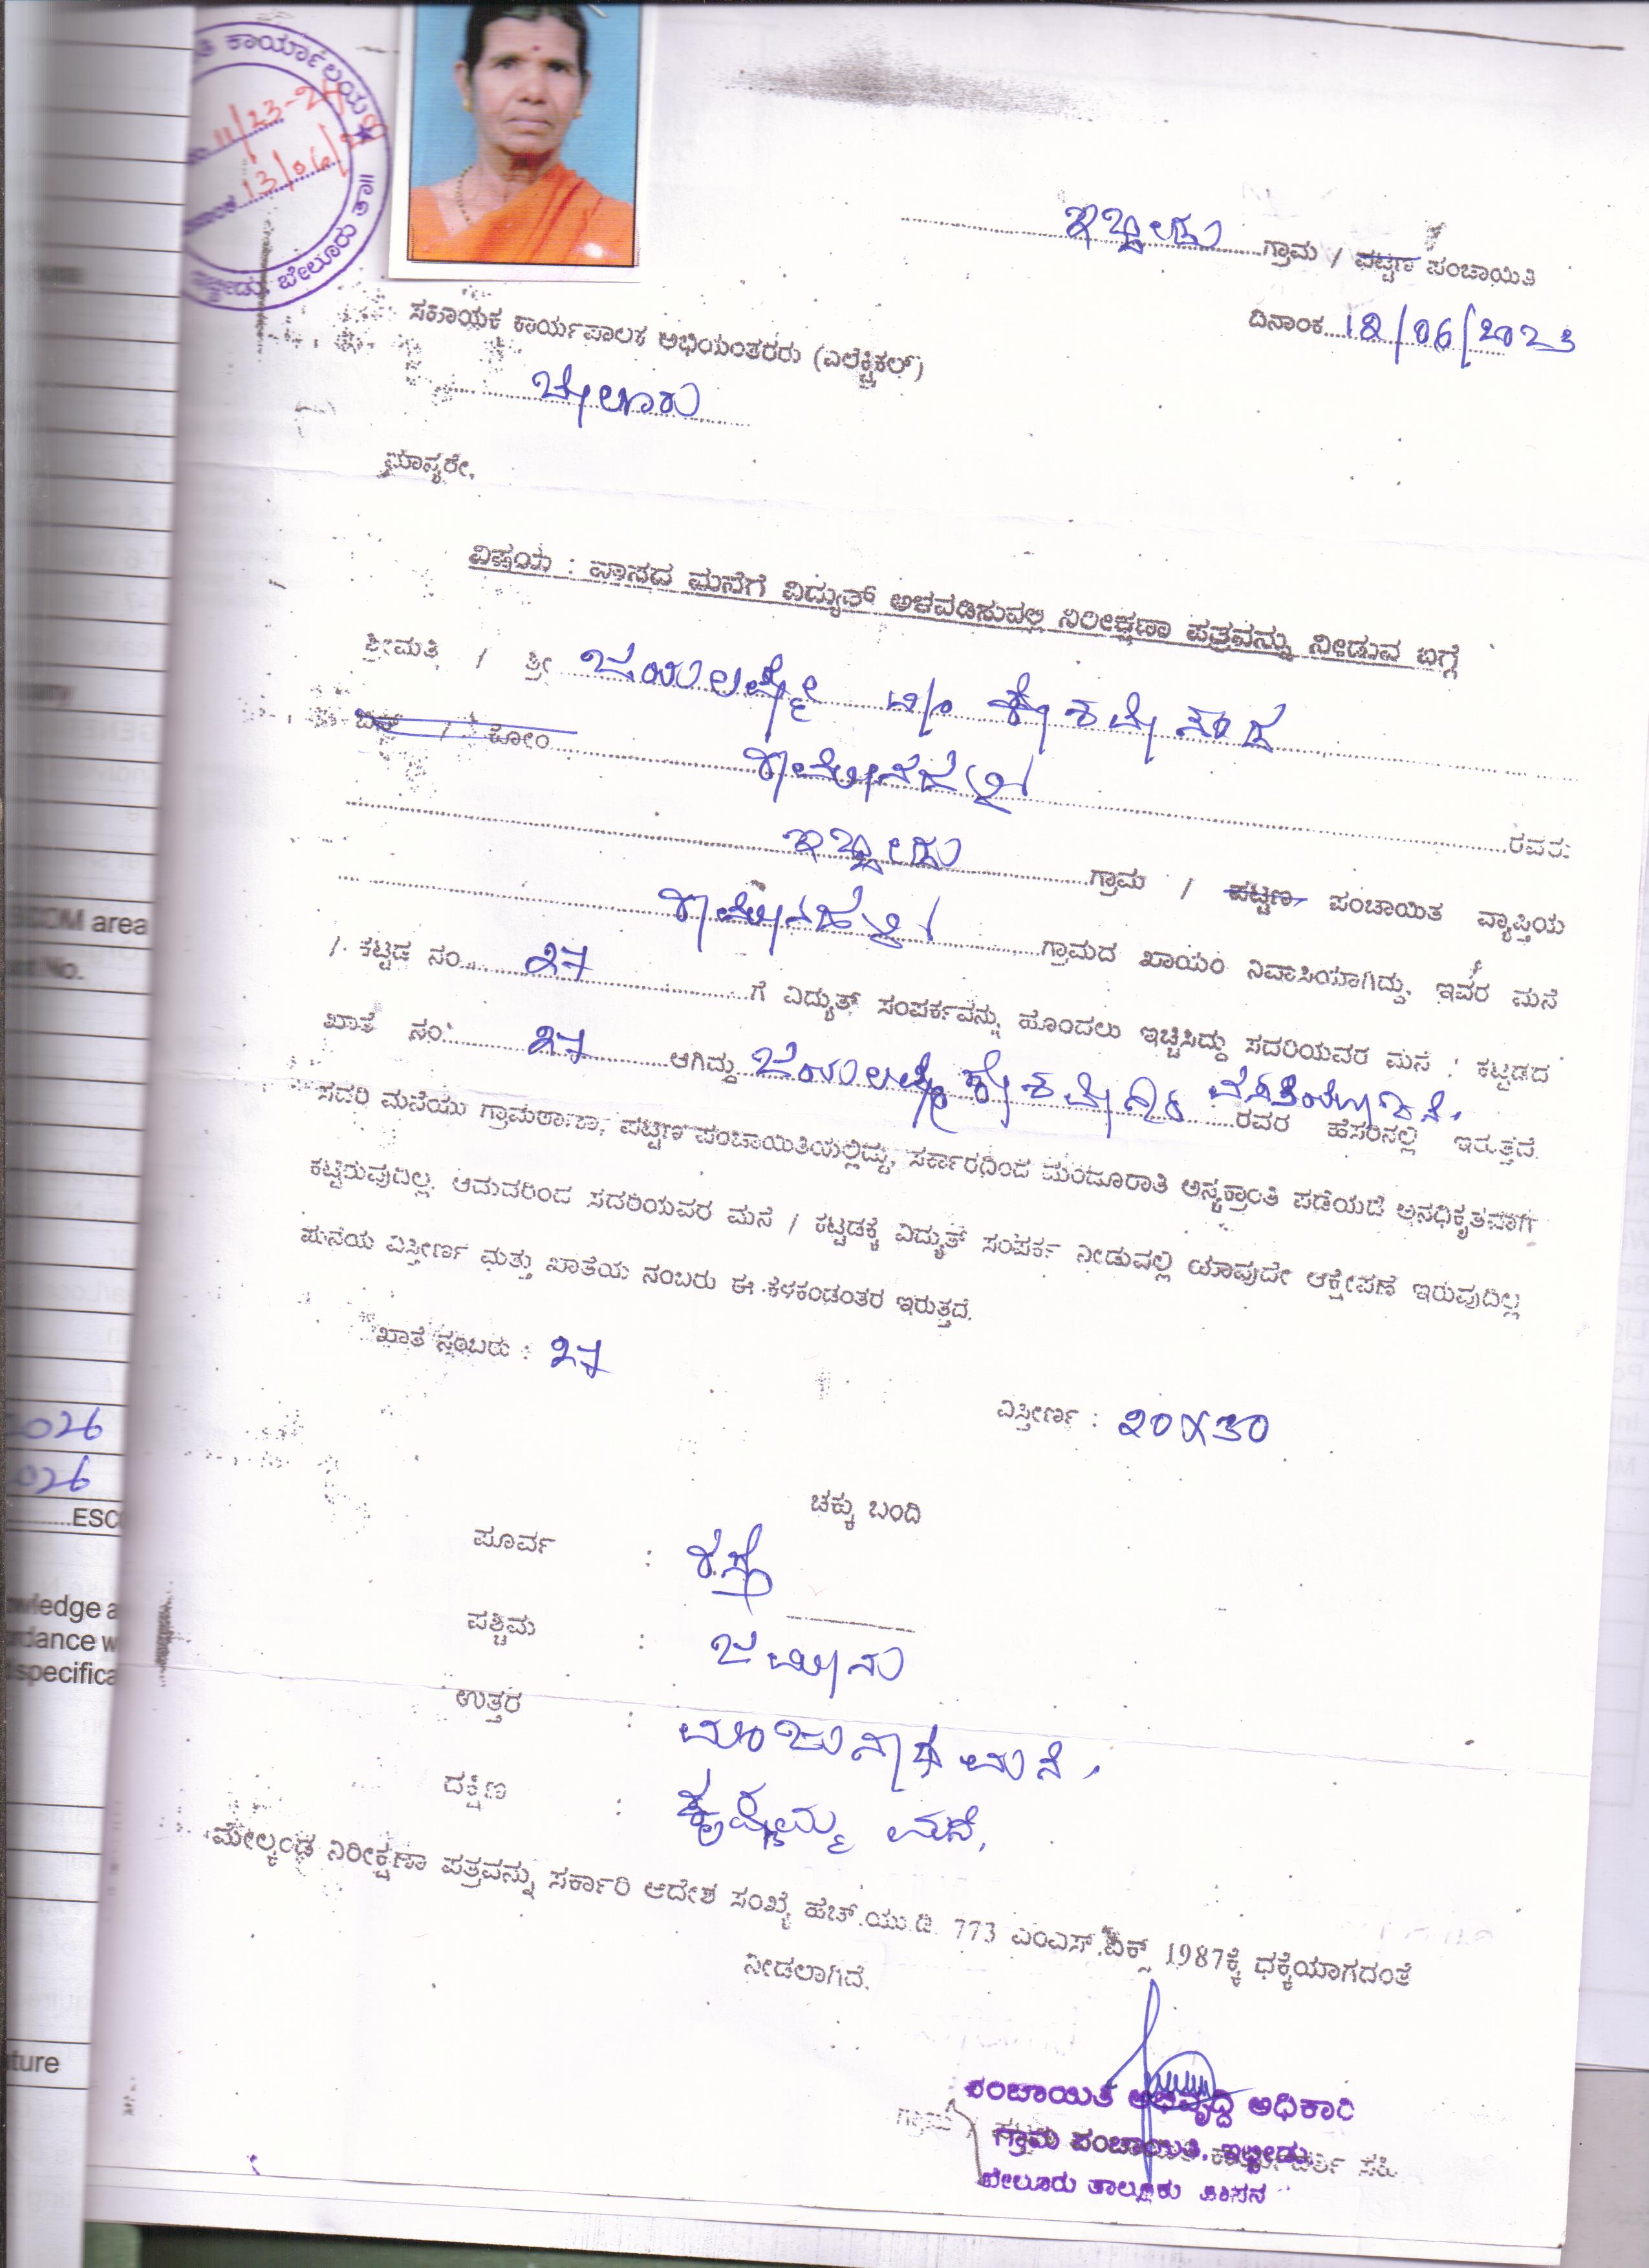 ಕಾರ್ಯಾಲಯ
11/23-24
13/06/
ಬೇಲೂರು ತಾ॥
ಇಬ್ಬೀಡು ಗ್ರಾಮ / ಪಟ್ಟಣ ಪಂಚಾಯಿತಿ
ದಿನಾಂಕ 12/06/2023
ಸಹಾಯಕ ಕಾರ್ಯಪಾಲಕ ಅಭಿಯಂತರರು (ಎಲೆಕ್ಟ್ರಿಕಲ್)
ಬೇಲೂರು
ಮಾನ್ಯರೇ,
ವಿಷಯ : ವಾಸದ ಮನೆಗೆ ವಿದ್ಯುತ್ ಅಳವಡಿಸುವಲ್ಲಿ ನಿರೀಕ್ಷಣಾ ಪತ್ರವನ್ನು ನೀಡುವ ಬಗ್ಗೆ
ಶ್ರೀಮತಿ / ಶ್ರೀ ಜಯಲಕ್ಷ್ಮೀ
ಬಿನ್ / ಕೋಂ
ರವರು
ಇಬ್ಬೀಡು ಗ್ರಾಮ / ಪಟ್ಟಣ ಪಂಚಾಯಿತ ವ್ಯಾಪ್ತಿಯ
ಗ್ರಾಮದ ಖಾಯಂ ನಿವಾಸಿಯಾಗಿದ್ದು, ಇವರ ಮನೆ
/ ಕಟ್ಟಡ ನಂ 27 ಗೆ ವಿದ್ಯುತ್ ಸಂಪರ್ಕವನ್ನು ಹೊಂದಲು ಇಚ್ಚಿಸಿದ್ದು ಸದರಿಯವರ ಮನೆ / ಕಟ್ಟಡದ
ಖಾತೆ ನಂ 27 ಆಗಿದ್ದು ಜಯಲಕ್ಷ್ಮೀ ರವರ ಹೆಸರಿನಲ್ಲಿ ಇರುತ್ತದೆ.
ಸದರಿ ಮನೆಯು ಗ್ರಾಮಠಾಣಾ, ಪಟ್ಟಣ ಪಂಚಾಯಿತಿಯಲ್ಲಿದ್ದು, ಸರ್ಕಾರದಿಂದ ಮಂಜೂರಾತಿ ಅನ್ಯಕ್ರಾಂತಿ ಪಡೆಯದೆ ಅನಧಿಕೃತವಾಗಿ
ಕಟ್ಟಿರುವುದಿಲ್ಲ. ಆದುದರಿಂದ ಸದರಿಯವರ ಮನೆ / ಕಟ್ಟಡಕ್ಕೆ ವಿದ್ಯುತ್ ಸಂಪರ್ಕ ನೀಡುವಲ್ಲಿ ಯಾವುದೇ ಆಕ್ಷೇಪಣೆ ಇರುವುದಿಲ್ಲ
ಮನೆಯ ವಿಸ್ತೀರ್ಣ ಮತ್ತು ಖಾತೆಯ ನಂಬರು ಈ ಕೆಳಕಂಡಂತರ ಇರುತ್ತದೆ.
ಖಾತೆ ನಂಬರು : 27
ವಿಸ್ತೀರ್ಣ : 20X30
ಚಕ್ಕು ಬಂದಿ
ಪೂರ್ವ : ರಸ್ತೆ
ಪಶ್ಚಿಮ : ಜಮೀನು
ಉತ್ತರ : ಮಂಜುನಾಥ ಮನೆ.
ದಕ್ಷಿಣ : ಕೃಷ್ಣಮ್ಮ ಮನೆ,
ಮೇಲ್ಕಂಡ ನಿರೀಕ್ಷಣಾ ಪತ್ರವನ್ನು ಸರ್ಕಾರಿ ಆದೇಶ ಸಂಖ್ಯೆ ಹೆಚ್.ಯು.ಡಿ. 773 ಎಂಎಸ್.ಏಕ್ಸ್ 1987ಕ್ಕೆ ಧಕ್ಕೆಯಾಗದಂತೆ
ನೀಡಲಾಗಿದೆ.
ಪಂಚಾಯಿತಿ ಅಭಿವೃದ್ಧಿ ಅಧಿಕಾರಿ
ಗ್ರಾಮ ಪಂಚಾಯಿತಿ, ಇಬ್ಬೀಡು
ಬೇಲೂರು ತಾಲ್ಲೂಕು ಹಾಸನ
COM area
No.
2026
026
ESC